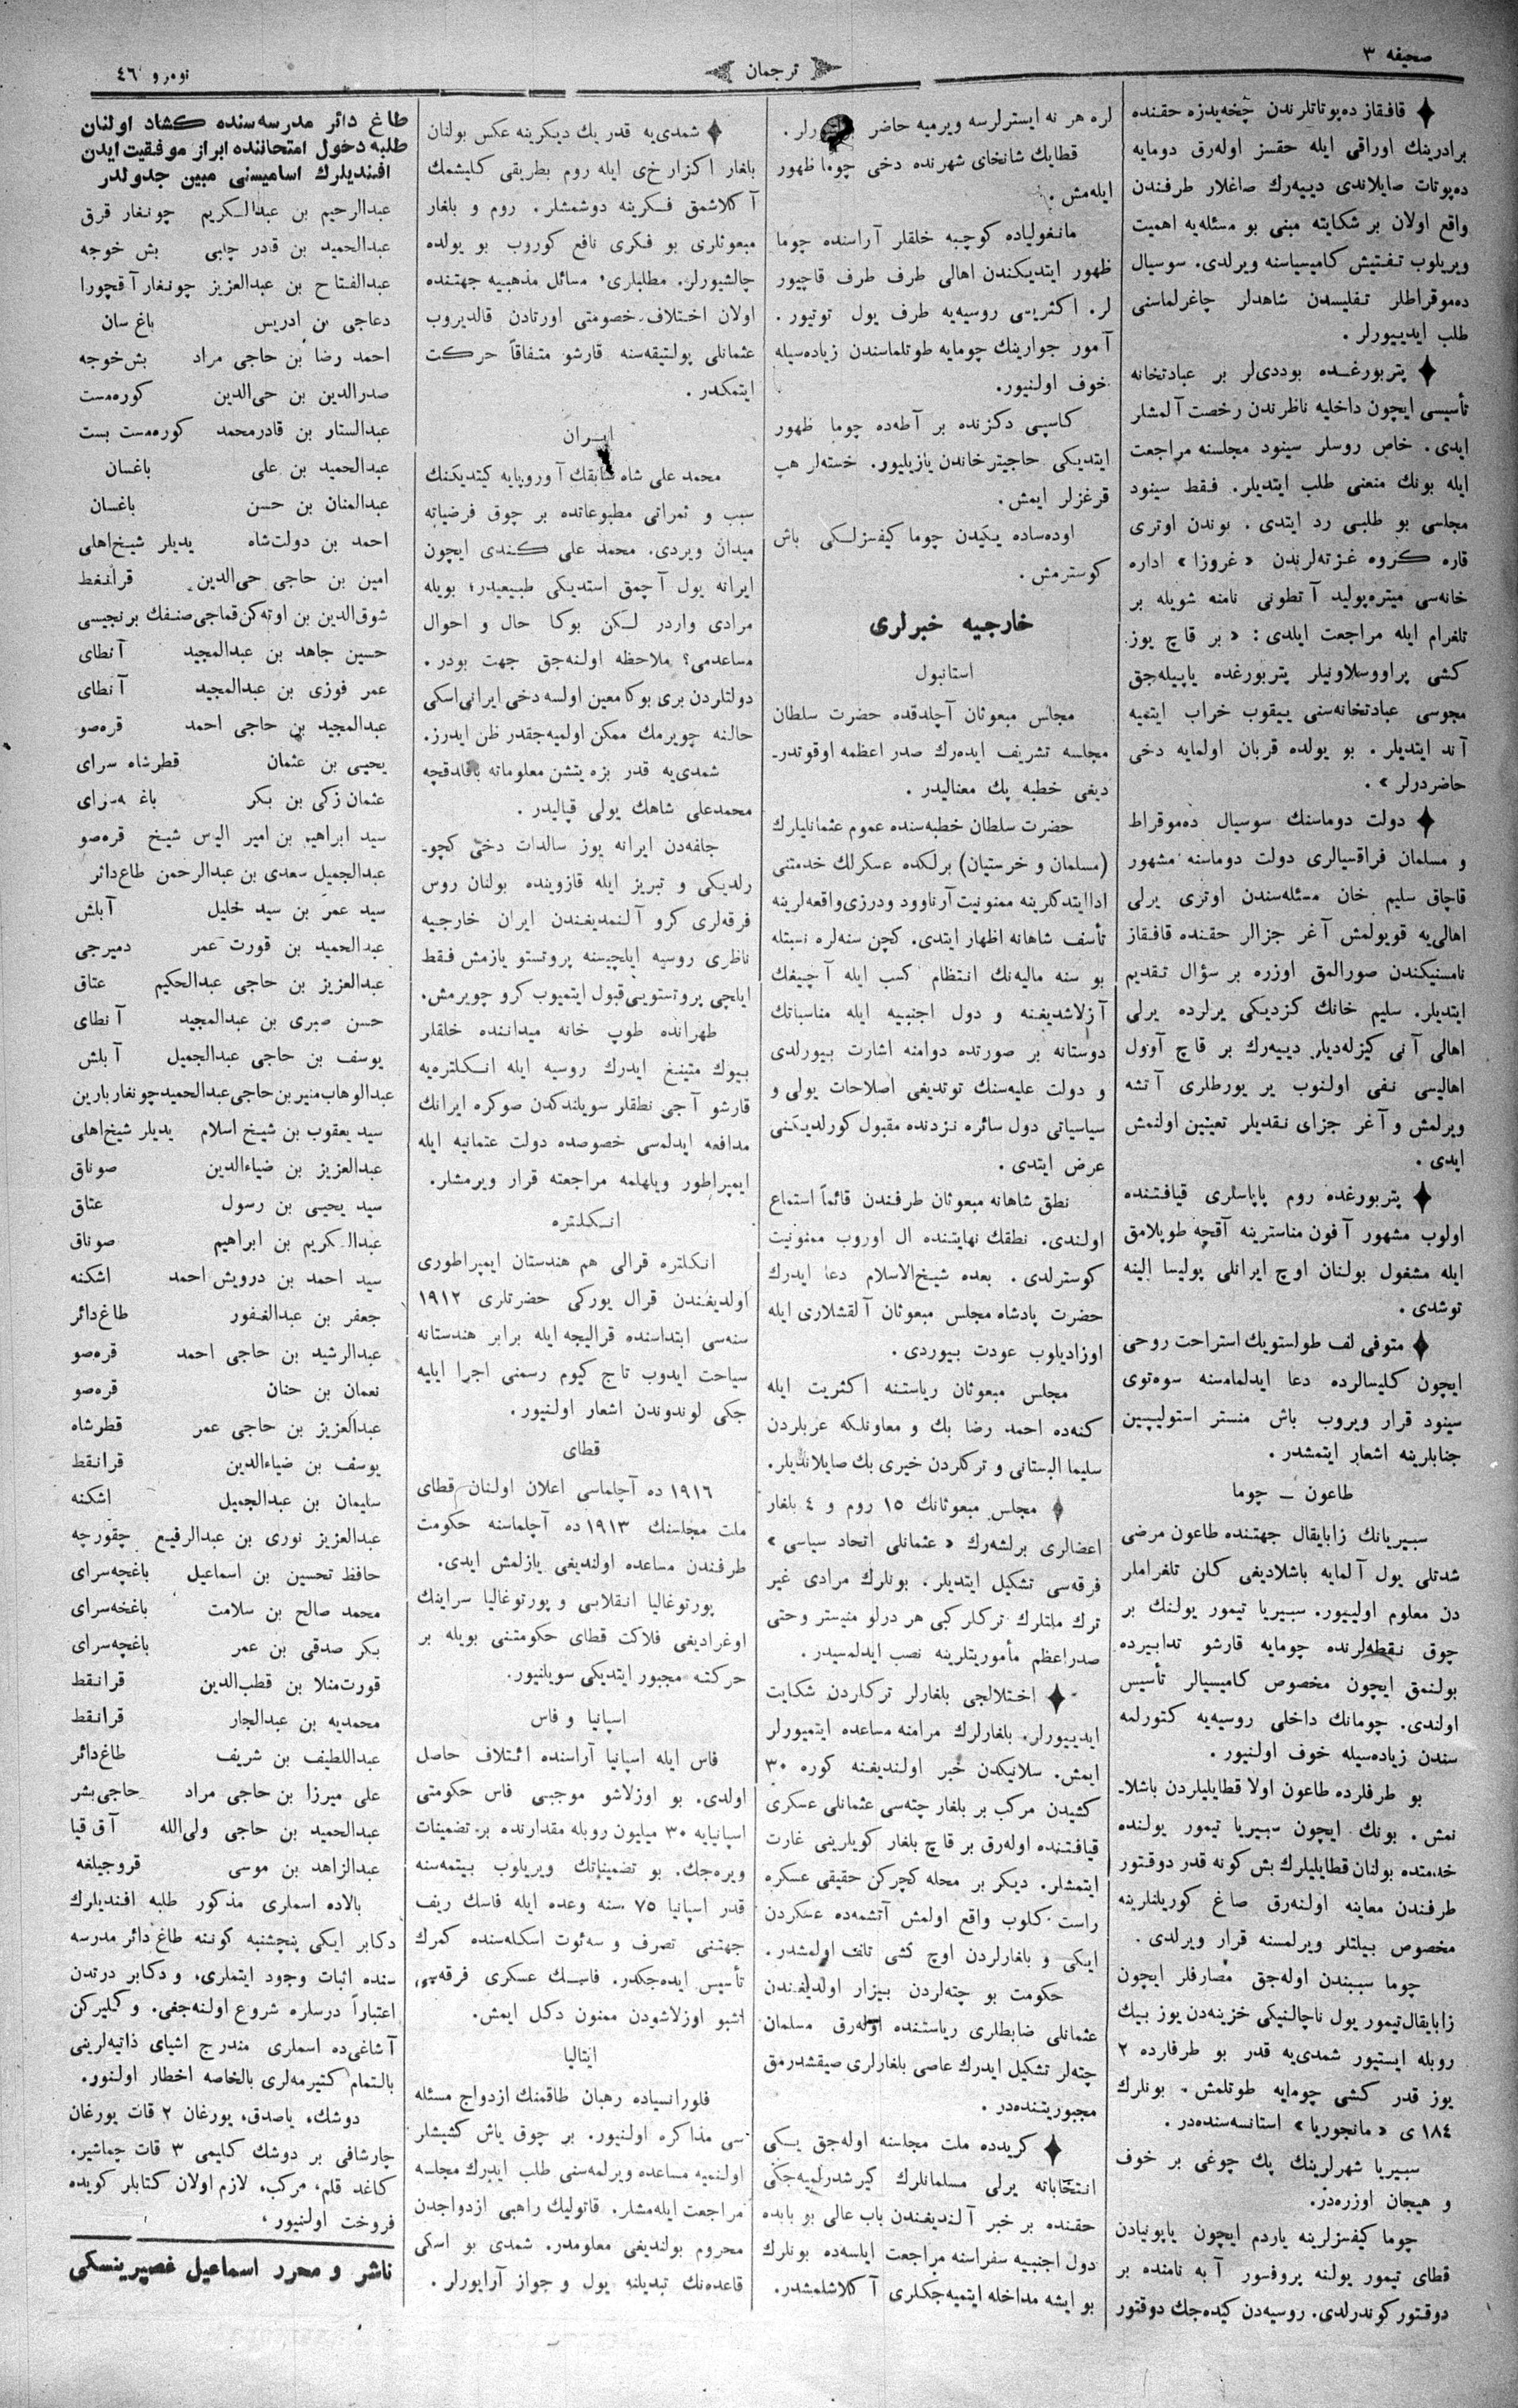 صحیفه ٣
ترجمان
نومرو ٤٦
قافقاز ده‌پوتاتلرندن چخه‌یدزه حقنده
برادرینك اوراقی ایله حقسز اوله‌رق دومایه
ده‌پوتات صایلاندی دییه‌رك صاغلار طرفندن
واقع اولان بر شكایته مبنی بو مسئله‌یه اهمیت
ویریلوب تفتیش كامیسیاسنه ویرلدی. سوسیال
ده‌موقراطلر تفلیسدن شاهدلر چاغرلماسنی
طلب ایدییورلر.
پتربورغده بوددی‌لر بر عبادتخانه
تأسیسی ایچون داخلیه ناظرندن رخصت آلمشلر
ایدی. خاص روسلر سینود مجلسنه مراجعت
ایله بونك منعنی طلب ایتدیلر. فقط سینود
مجلسی بو طلبی رد ایتدی. بوندن اوتری
قاره گروه غزته‌لرندن «غروزا» اداره
خانه‌سی میتره‌پولید آنطونی نامنه شویله بر
تلغرام ایله مراجعت ایلدی: «بر قاچ یوز
كشی پراووسلاونیلر پتربورغده یاپیله‌جق
مجوسی عبادتخانه‌سنی ییقوب خراب ایتمیه
آند ایتدیلر. بو یولده قربان اولمایه دخی
حاضردرلر».
دولت دوماسنك سوسیال ده‌موقراط
و مسلمان فراقسیالری دولت دوماسنه مشهور
قاچاق سلیم خان مسئله‌سندن اوتری یرلی
اهالی‌یه قویولمش آغر جزالر حقنده قافقاز
نامسنیكندن صورالمق اوزره بر سؤال تقدیم
ایتدیلر. سلیم خانك كزدیكی یرلرده یرلی
اهالی آنی كیزله‌دیلر دییه‌رك بر قاچ آوول
اهالیسی نفی اولنوب یر یورطلری آتشه
ویرلمش و آغر جزای نقدیلر تعیین اولنمش
ایدی.
پتربورغده روم پاپاسلری قیافتنده
اولوب مشهور آفون مناسترینه آقچه طوپلامق
ایله مشغول بولنان اوچ ایرانلی پولیسا الینه
توشدی.
متوفی لف طولستویك استراحت روحی
ایچون كلیسالرده دعا ایدلمامسنه سوه‌توی
سینود قرار ویروب باش منستر استولیپین
جنابلرینه اشعار ایتمشدر.
طاعون ــ چوما
سبیریانك زابایقال جهتنده طاعون مرضی
شدتلی یول آلمایه باشلادیغی كلن تلغراملر
دن معلوم اولییور. سبیریا تیمور یولنك بر
چوق نقطه‌لرنده چومایه قارشو تدابیرده
بولنمق ایچون مخصوص كامیسیالر تأسیس
اولندی. چومانك داخلی روسیه‌یه كتورلمه
سندن زیاده‌سیله خوف اولنیور.
بو طرفلرده طاعون اولا قطایلیلردن باشلا-
نمش. بونك ایچون سبیریا تیمور یولنده
خدمتده بولنان قطایلیلرك بش كونه قدر دوقتور
طرفندن معاینه اولنه‌رق صاغ كوریلنلرینه
مخصوص بیلتلر ویرلمسنه قرار ویرلدی.
چوما سببندن اوله‌جق مصارفلر ایچون
زابایقال تیمور یول ناچالنیكی خزینه‌دن یوز بیك
روبله ایستیور شمدی‌یه قدر بو طرفلرده ٢
یوز قدر كشی چومایه طوتلمش. بونلرك
١٨٤ ی «مانجوریا» استانسه‌سنده‌در.
سبیریا شهرلرینك پك چوغی بر خوف
و هیجان اوزره‌در.
چوما كیفسزلرینه یاردم ایچون یاپونیادن
قطای تیمور یولنه پروفسور آبه نامنده بر
دوقتور كوندرلدی. روسیه‌دن كیده‌جك دوقتور
لره هر نه ایسترلرسه ویرمیه حاضر
قطایك شانخای شهرنده دخی چوما ظهور
ایله‌مش.
مانغولیاده كوچبه خلقلر آراسنده چوما
ظهور ایتدیكندن اهالی طرف طرف قاچیور
لر. اكثریسی روسیه‌یه طرف یول توتیور.
آمور جوارینك چومایه طوتلماسندن زیاده‌سیله
خوف اولنیور.
كاسپی دكزنده بر آطه‌ده چوما ظهور
ایتدیكی حاجیترخاندن یازیلیور. خسته‌لر هپ
قرغزلر ایمش.
اوده‌ساده یكیدن چوما كیفسزلكی باش
كوسترمش.
خارجیه خبرلری
استانبول
مجلس مبعوثان آچلدقده حضرت سلطان
مجلسه تشریف ایده‌رك صدر اعظمه اوقوتدر-
دیغی خطبه پك معنالیدر.
حضرت سلطان خطبه‌سنده عموم عثمانلیلرك
(مسلمان و خرستیان) برلكده عسكرلك خدمتنی
ادا ایتدكلرینه ممنونیت آرناوود ودرزی واقعه‌لرینه
تأسف شاهانه اظهار ایتدی. كچن سنه‌لره نسبتله
بو سنه مالیه‌نك انتظام كسب ایله آچیغك
آزلاشدیغنه و دول اجنبیه ایله مناسباتك
دوستانه بر صورتده دوامنه اشارت بیورلدی
و دولت علیه‌سنك توتدیغی اصلاحات یولی و
سیاسیاتی دول سائره نزدنده مقبول كورلدیكنی
عرض ایتدی.
نطق شاهانه مبعوثان طرفندن قائماً استماع
اولندی. نطقك نهایتنده ال اوروب ممنونیت
كوسترلدی. بعده شیخ‌الاسلام دعا ایدرك
حضرت پادشاه مجلس مبعوثان آلقشلاری ایله
اوزادیلوب عودت بیوردی.
مجلس مبعوثان ریاستنه اكثریت ایله
كنه‌ده احمد رضا بك و معاونلكه عربلردن
سلیما البستانی و تركلردن خیری بك صایلاندیلر.
مجلس مبعوثانك ١٥ روم و ٤ بلغار
اعضالری برلشه‌رك «عثمانلی اتحاد سیاسی»
فرقه‌سی تشكیل ایتدیلر. بونلرك مرادی غیر
ترك ملتلرك تركلر كبی هر درلو منیستر وحتی
صدراعظم مأموریتلرینه نصب ایدلمسیدر.
اختلالجی بلغارلر تركلردن شكایت
ایدییورلر. بلغارلرك مرامنه مساعده ایتمیورلر
ایمش. سلانیكدن خبر اولندیغنه كوره ٣٠
كشیدن مركب بر بلغار چته‌سی عثمانلی عسكری
قیافتنده اوله‌رق بر قاچ بلغار كویلرینی غارت
ایتمشلر. دیكر بر محله كچركن حقیقی عسكره
راست كلوب واقع اولمش آتشمه‌ده عسكردن
ایكی و بلغارلردن اوچ كشی تلف اولمشدر.
حكومت بو چته‌لردن بیزار اولدیغندن
عثمانلی ضابطلری ریاستنده اوله‌رق مسلمان
چته‌لر تشكیل ایدرك عاصی بلغارلری صیقشدرمق
مجبوریتنده‌در.
كریدده ملت مجلسنه اوله‌جق یكی
انتخاباته یرلی مسلمانلرك كیرشدرلمیه‌جكی
حقنده بر خبر آلندیغندن باب عالی بو بابده
دول اجنبیه سفراسنه مراجعت ایلسه‌ده بونلرك
بو ایشه مداخله ایتمیه‌جكلری آكلاشلمشدر.
شمدی‌یه قدر یك دیكرینه عكس بولنان
بلغار اكزارخی ایله روم بطریقی كلیشمك
آكلاشمق فكرینه دوشمشلر. روم و بلغار
مبعوثلری بو فكری نافع كوروب بو یولده
چالشیورلر. مطلبلری، مسائل مذهبیه جهتنده
اولان اختلاف خصومتی اورتادن قالدیروب
عثمانلی پولتیقه‌سنه قارشو متفاقاً حركت
ایتمكدر.
ایران
محمد علی شاه سابقك آوروپایه كیتدیكنك
سبب و ثمراتی مطبوعاتده بر چوق فرضیاته
میدان ویردی. محمد علی كندی ایچون
ایرانه یول آچمق استدیكی طبیعیدر؛ بویله
مرادی واردر لكن بوكا حال و احوال
مساعدمی؟ ملاحظه اولنه‌جق جهت بودر.
دولتلردن بری بوكا معین اولسه دخی ایرانی اسكی
حالنه چویرمك ممكن اولمیه‌جقدر ظن ایدرز.
شمدی‌یه قدر بزه یتشن معلوماته باقلدقچه
محمدعلی شاهك یولی قپالیدر.
جلفه‌دن ایرانه یوز سالدات دخی كچو-
رلدیكی و تبریز ایله قازوینده بولنان روس
فرقه‌لری كرو آلنمدیغندن ایران خارجیه
ناظری روسیه ایلچیسنه پروتستو یازمش فقط
ایلچی پروتستویی قبول ایتمیوب كرو چویرمش.
طهرانده طوپ خانه میداننده خلقلر
بیوك متینغ ایدرك روسیه ایله انكلتره‌یه
قارشو آجی نطقلر سویلندكدن صوكره ایرانك
مدافعه ایدلمسی خصوصده دولت عثمانیه ایله
ایمپراطور ویلهلمه مراجعته قرار ویرمشلر.
انكلتره
انكلتره قرالی هم هندستان ایمپراطوری
اولدیغندن قرال یوركی حضرتلری ١٩١٢
سنه‌سی ابتداسنده قرالیچه ایله برابر هندستانه
سیاحت ایدوب تاج كیوم رسمنی اجرا ایلیه
جكی لوندوندن اشعار اولنیور.
قطای
١٩١٦ ده آچلماسی اعلان اولنان قطای
ملت مجلسنك ١٩١٣ ده آچلماسنه حكومت
طرفندن مساعده اولندیغی یازلمش ایدی.
پورتوغالیا انقلابی و پورتوغالیا سراینك
اوغرادیغی فلاكت قطای حكومتنی بویله بر
حركته مجبور ایتدیكی سویلنیور.
اسپانیا و فاس
فاس ایله اسپانیا آراسنده ائتلاف حاصل
اولدی. بو اوزلاشو موجبی فاس حكومتی
اسپانیایه ٣٠ میلیون روبله مقدارنده بر تضمینات
ویره‌جك. بو تضمیناتك ویریلوب بیتمه‌سنه
قدر اسپانیا ٧٥ سنه وعده ایله فاسك ریف
جهتنی تصرف و سه‌ئوت اسكله‌سنده كمرك
تأسیس ایده‌جكدر. فاسك عسكری فرقه‌سی
اشبو اوزلاشودن ممنون دكل ایمش.
ایتالیا
فلورانسیاده رهبان طاقمنك ازدواج مسئله
سی مذاكره اولنیور. بر چوق یاش كشیشلر
اولنمیه مساعده ویرلمه‌سنی طلب ایدرك مجلسه
مراجعت ایله‌مشلر. قاتولیك راهبی ازدواجدن
محروم بولندیغی معلومدر. شمدی بو اسكی
قاعده‌نك تبدیلنه یول و جواز آرایورلر.
طاغ دائر مدرسه‌سنده كشاد اولنان
طلبه دخول امتحاننده ابراز موفقیت ایدن
افندیلرك اسامیسنی مبین جدولدر
عبدالرحیم بن عبدالكریم چونغار قرق
عبدالحمید بن قادر چلبی بش خوجه
عبدالفتاح بن عبدالعزیز چونغار آقچورا
دعاجی بن ادریس باغ سان
احمد رضا بن حاجی مراد بش خوجه
صدرالدین بن حی‌الدین كوره‌مست
عبدالستار بن قادرمحمد كوره‌مست بست
عبدالحمید بن علی باغسان
عبدالمنان بن حسن باغسان
احمد بن دولت‌شاه یدیلر شیخ‌اهلی
امین بن حاجی حی‌الدین قرانقط
شوق‌الدین بن اوته‌كن قماجی صنفك برنجیسی
حسین جاهد بن عبدالمجید آنطای
عمر فوزی بن عبدالمجید آنطای
عبدالمجید بن حاجی احمد قره‌صو
یحیی بن عثمان قطرشاه سرای
عثمان زكی بن بكر باغچه‌سرای
سید ابراهیم بن امیر الیاس شیخ قره‌صو
عبدالجمیل سعدی بن عبدالرحمن طاغ‌دائر
سید عمر بن سید خلیل آبلش
عبدالحمید بن قورت عمر دمیرجی
عبدالعزیز بن حاجی عبدالحكیم عتاق
حسن صبری بن عبدالمجید آنطای
یوسف بن حاجی عبدالجمیل آبلش
عبدالوهاب منیر بن حاجی عبدالحمید چونغار بارین
سید یعقوب بن شیخ اسلام یدیلر شیخ‌اهلی
عبدالعزیز بن ضیاءالدین صوناق
سید یحیی بن رسول عتاق
عبدالكریم بن ابراهیم صوناق
سید احمد بن درویش احمد اشكنه
جعفر بن عبدالغفور طاغ‌دائر
عبدالرشید بن حاجی احمد قره‌صو
نعمان بن حنان قره‌صو
عبدالعزیز بن حاجی عمر قطرشاه
یوسف بن ضیاءالدین قرانقط
سلیمان بن عبدالجمیل اشكنه
عبدالعزیز نوری بن عبدالرفیع چقورچه
حافظ تحسین بن اسماعیل باغچه‌سرای
محمد صالح بن سلامت باغچه‌سرای
بكر صدقی بن عمر باغچه‌سرای
قورت‌منلا بن قطب‌الدین قرانقط
محمدیه بن عبدالجار قرانقط
عبداللطیف بن شریف طاغ‌دائر
علی میرزا بن حاجی مراد حاجی‌بشر
عبدالحمید بن حاجی ولی‌الله آق قیا
عبدالزاهد بن موسی قروجیلغه
بالاده اسملری مذكور طلبه افندیلرك
دكابر ایكی پنچشنبه كوننه طاغ دائر مدرسه
سنده اثبات وجود ایتملری، و دكابر درتدن
اعتباراً درسلره شروع اولنه‌جغی. و كلیركن
آشاغی‌ده اسملری مندرج اشیای ذاتیه‌لرینی
بالتمام كتیرمه‌لری بالخاصه اخطار اولنور.
دوشك، یاصدق، یورغان ٢ قات یورغان
چارشافی بر دوشك كلیمی ٣ قات چماشیر.
كاغد قلم، مركب، لازم اولان كتابلر كویده
فروخت اولنیور،
ناشر و محرر اسماعیل غصپرینسكی